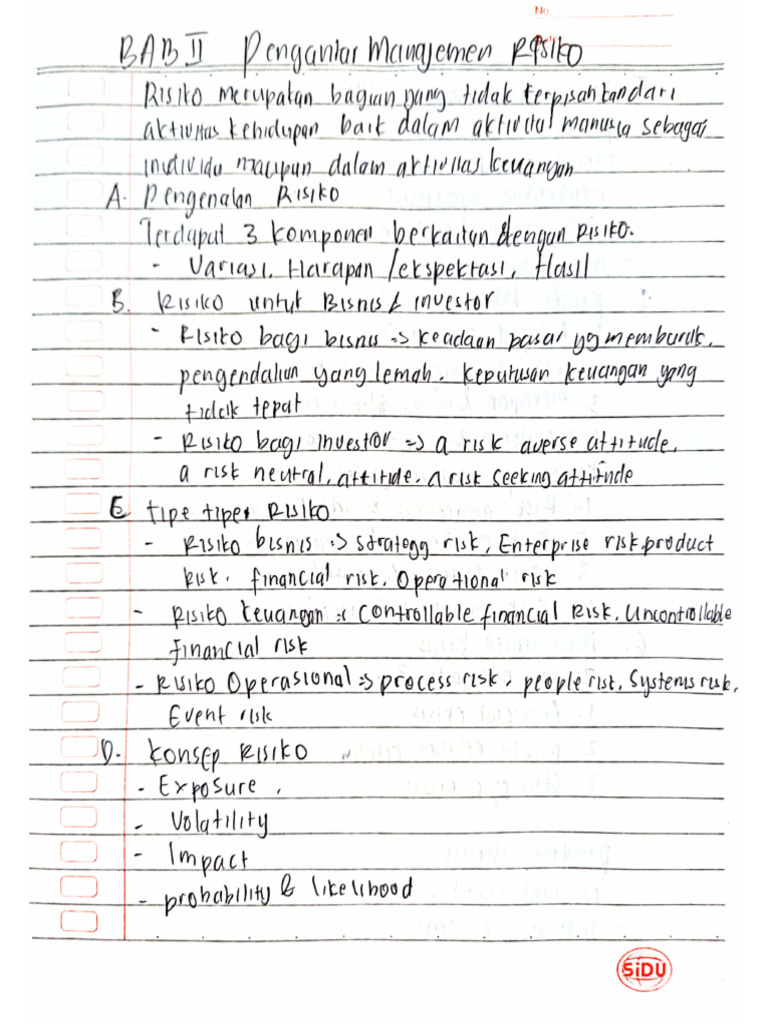 No.
BAB II Pengantar Manajemen Risiko
Risiko merupakan bagian yang tidak terpisahkan dari
aktivitas kehidupan baik dalam aktivital manusia sebagai
individu maupun dalam aktivitas keuangan
A. Pengenalan Risiko
Terdapat 3 komponen berkaitan dengan Risiko.
- Variasi, Harapan /ekspektasi, Hasil
B. Risiko untuk Bisnis & investor
- Risiko bagi bisnis => keadaan pasar yg memburuk,
pengendalian yang lemah. keputusan keuangan yang
tidak tepat
- Risiko bagi investor => a risk averse attitude,
a risk neutral, attitude. a risk seeking attitude
C tipe tipe Risiko
- Risiko bisnis => strategy risk, Enterprise risk. product
risk. financial risk. Operational risk
- Risiko keuangan => Controllable financial Risk. Uncontrollable
financial risk
- Risiko Operasional => process risk, people risk, Systems risk,
Event risk
D. Konsep Risiko
- Exposure,
- Volatility
- Impact
- probability & likelihood
SiDU